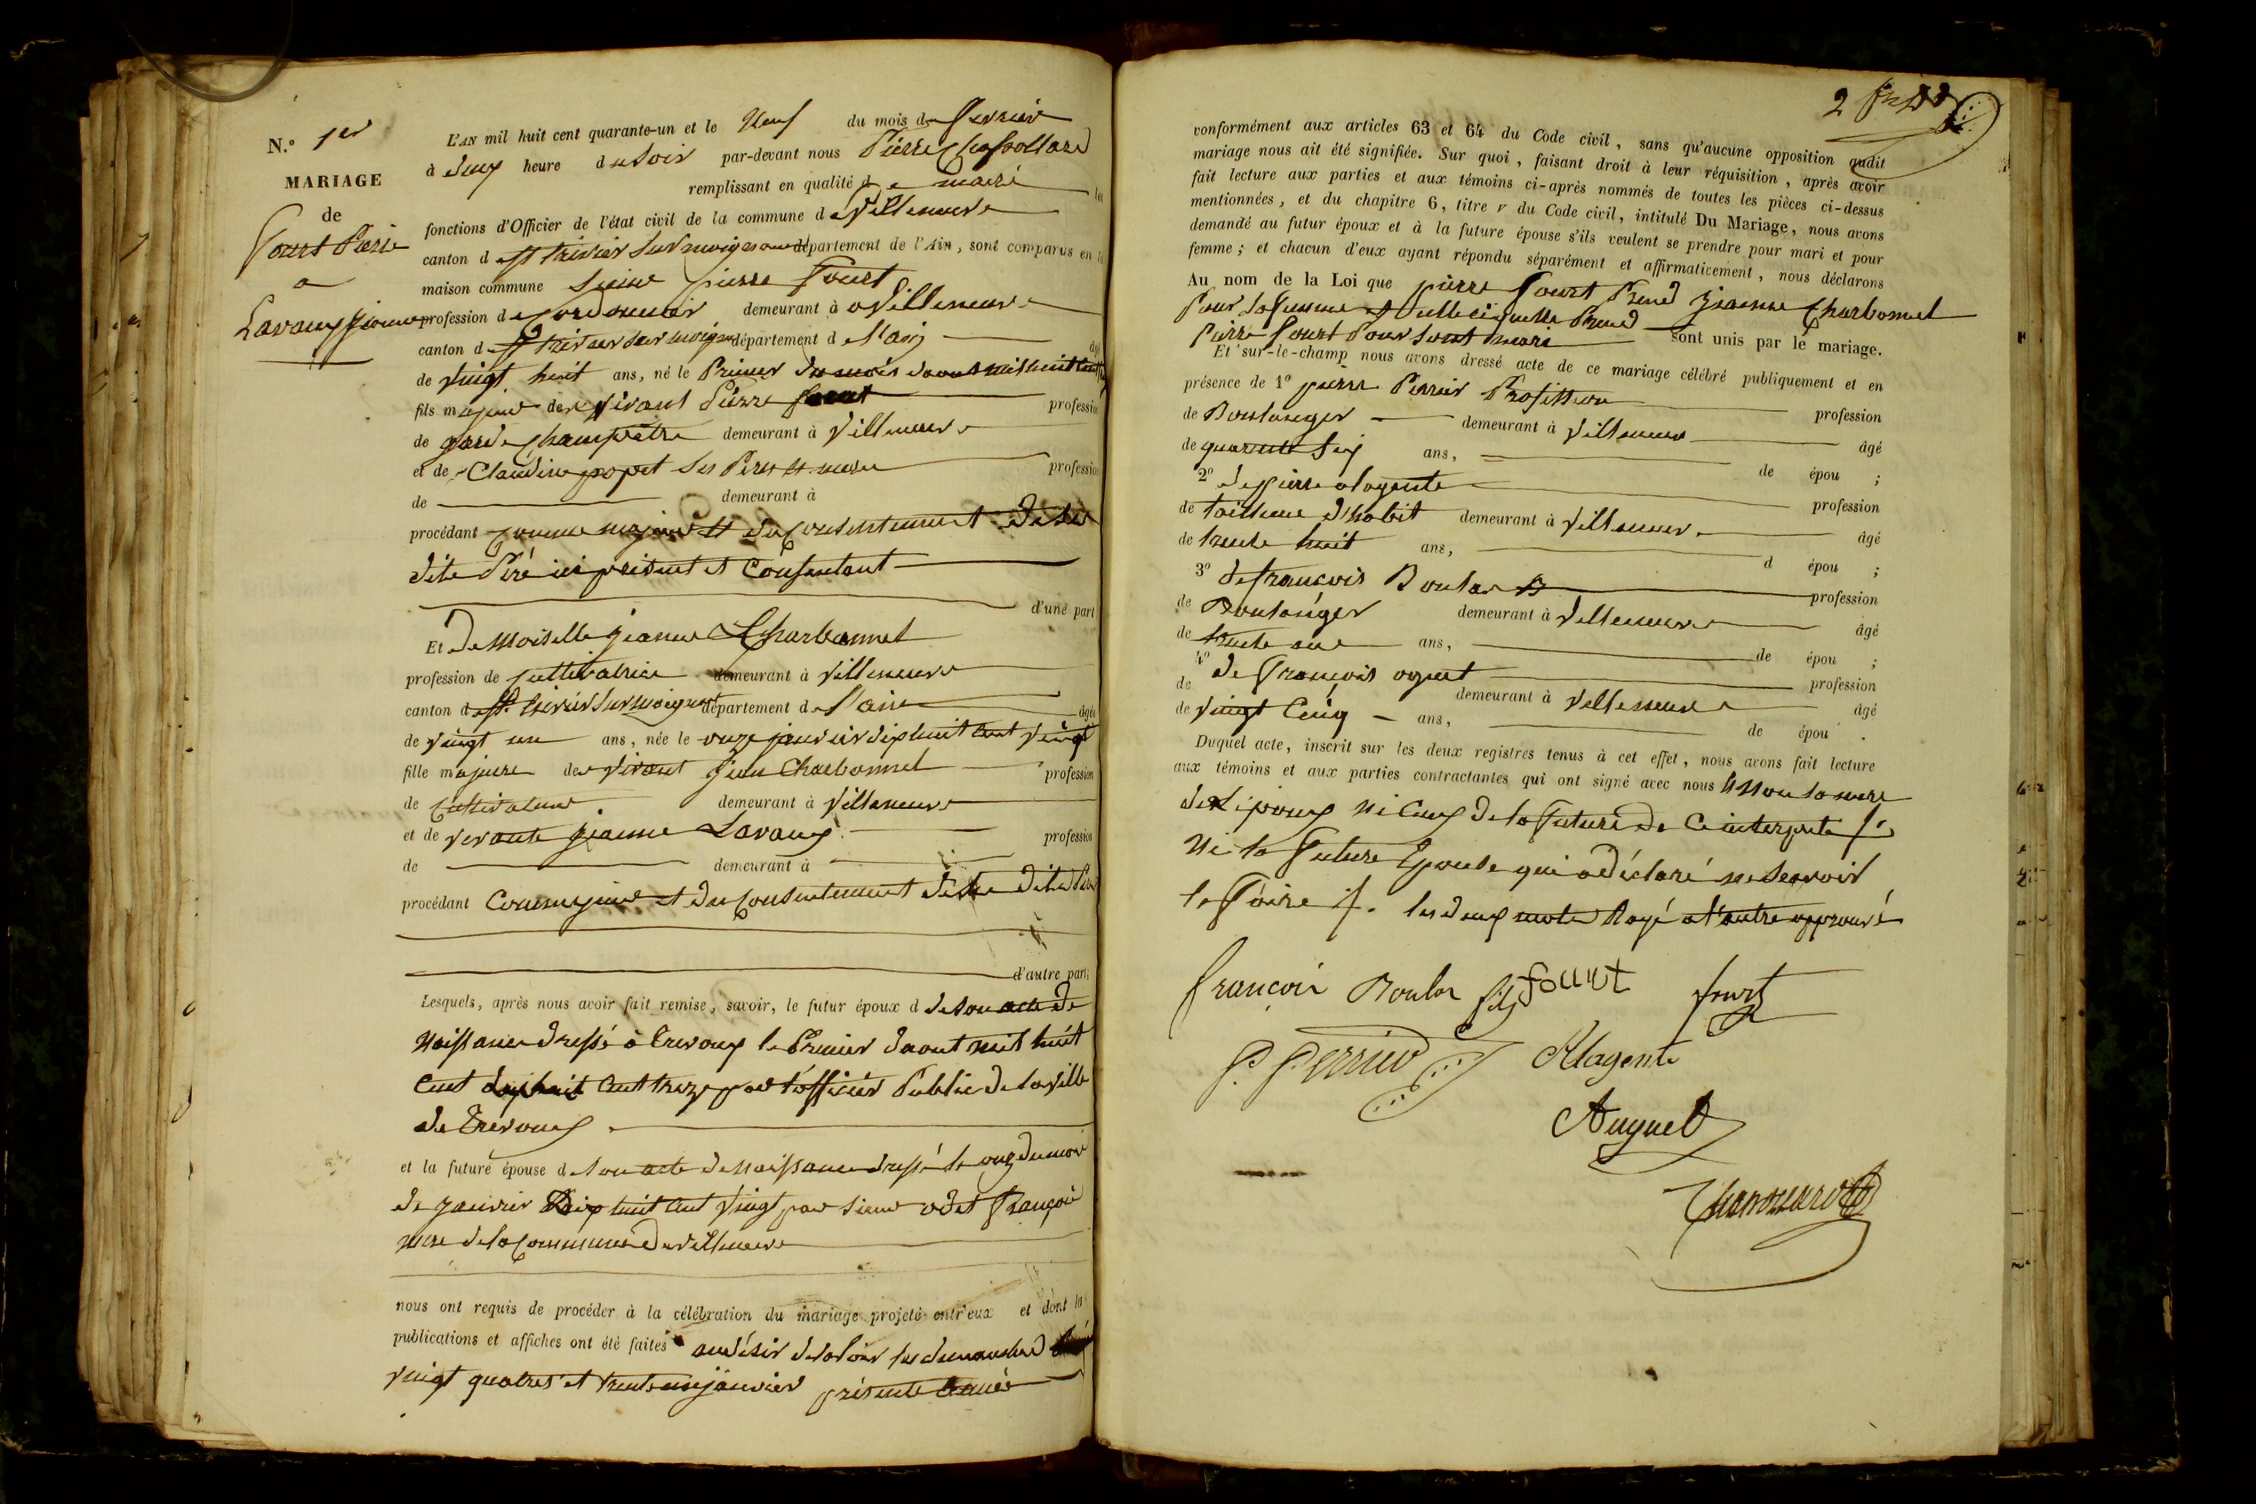 N.º 1er
MARIAGE
de
Fourt Pierre
a
Lavaux jeanne
L'AN mil huit cent quarante-un et le Neuf du mois de fevrier
à deux heure du Soir par-devant nous Pierre
remplissant en qualité de maire
fonctions d'Officier de l'état civil de la commune de Villeneuve
canton de St trivier Sur moignans département de l'Ain, sont comparus en la
maison commune Sieur pierre Fourt
profession de Cordonnier demeurant à Villeneuve
canton de St trivier sur moignans département d l'ain
de Vingt huit ans, né le Premier du mois daout mil huit cent
fils majeur de Vivant Pierre fourt profession
de garde Champêtre demeurant à Villeneuve
et de Claudine popet Ses Peres et mere profession
de demeurant à
procédant comme majeur et du Consentement de Ses
dite Péré ici présent et Consentant
d'une part
Et deMoiselle jeanne Charbonnet
profession de Cultivatrice demeurant à Villeneuve
canton d St. trivier Sur moignans département d l'ain âgée
de vingt un ans, née le onze janvier dix huit cent Vingt
fille majeure de Vivant jean Charbonnet profession
de Cultivateur. demeurant à Villeneuve
et de vivante jeanne Lavaux. profession
de demeurant à
procédant Comme majeure et du Consentement de Ses dite Père
d'autre part;
Lesquels, après nous avoir fait remise, savoir, le futur époux d de Son acte de
Naissance dressé à Trevoux le Premier daout mil huit
Cent dix huit Cent treize par l'officier Public de la Ville
de Trevoux.
et la future épouse d Son acte de Naissance dressé le onze du mois
de janvier dix huit cent Vingt par Sieur odet François
mere de la Commune de Villeneuve
nous ont requis de procéder à la célébration du mariage projeté entr'eux et dont la
publications et affiches ont été faites au désir de la loi les dimanches
vingt quatres et trente un janvier présente année
2
conformément aux articles 63 et 64 du Code civil, sans qu'aucune opposition audit
mariage nous ait été signifiée. Sur quoi, faisant droit à leur réquisition, après avoir
fait lecture aux parties et aux témoins ci-après nommés de toutes les pièces ci-dessus
mentionnées, et du chapitre 6, titre v du Code civil, intitulé Du Mariage, nous avons
demandé au futur époux et à la future épouse s'ils veulent se prendre pour mari et pour
femme; et chacun d'eux ayant répondu séparément et affirmativement, nous déclarons
Au nom de la Loi que pierre Fourt Prend jeanne Charbonnet
Pour Sa femme et Prend
Pierre Fourt Pour Sont mari sont unis par le mariage.
Et sur-le-champ nous avons dressé acte de ce mariage célébré publiquement et en
présence de 1º pierre Perrier Profission profession
de Boulanger demeurant à Villeneuve âgé
de quarente Six ans, de épou ;
2º de pierre alagente profession
de tailleur d'habit demeurant à Villeneuve âgé
de trente huit ans, d épou ;
3º de françois Boular profession
de Boulanger demeurant à Villeneuve âgé
de trente une ans, de épou ;
4º de François oguet profession
de demeurant à Villeneuve âgé
de vingt Cinq ans, de épou .
Duquel acte, inscrit sur les deux registres tenus à cet effet, nous avons fait lecture
aux témoins et aux parties contractantes qui ont signé avec nous Et Non la mere
de l'époux Ni Ceux de la Future de Ce interpelle
Ni la Future Epouse qui a déclaré ne Savoir
le Faire les deux mots Rayé et l'autre approuvé
françois Boular fils fourt fourt
P. Perrier
Alagente
Auguet